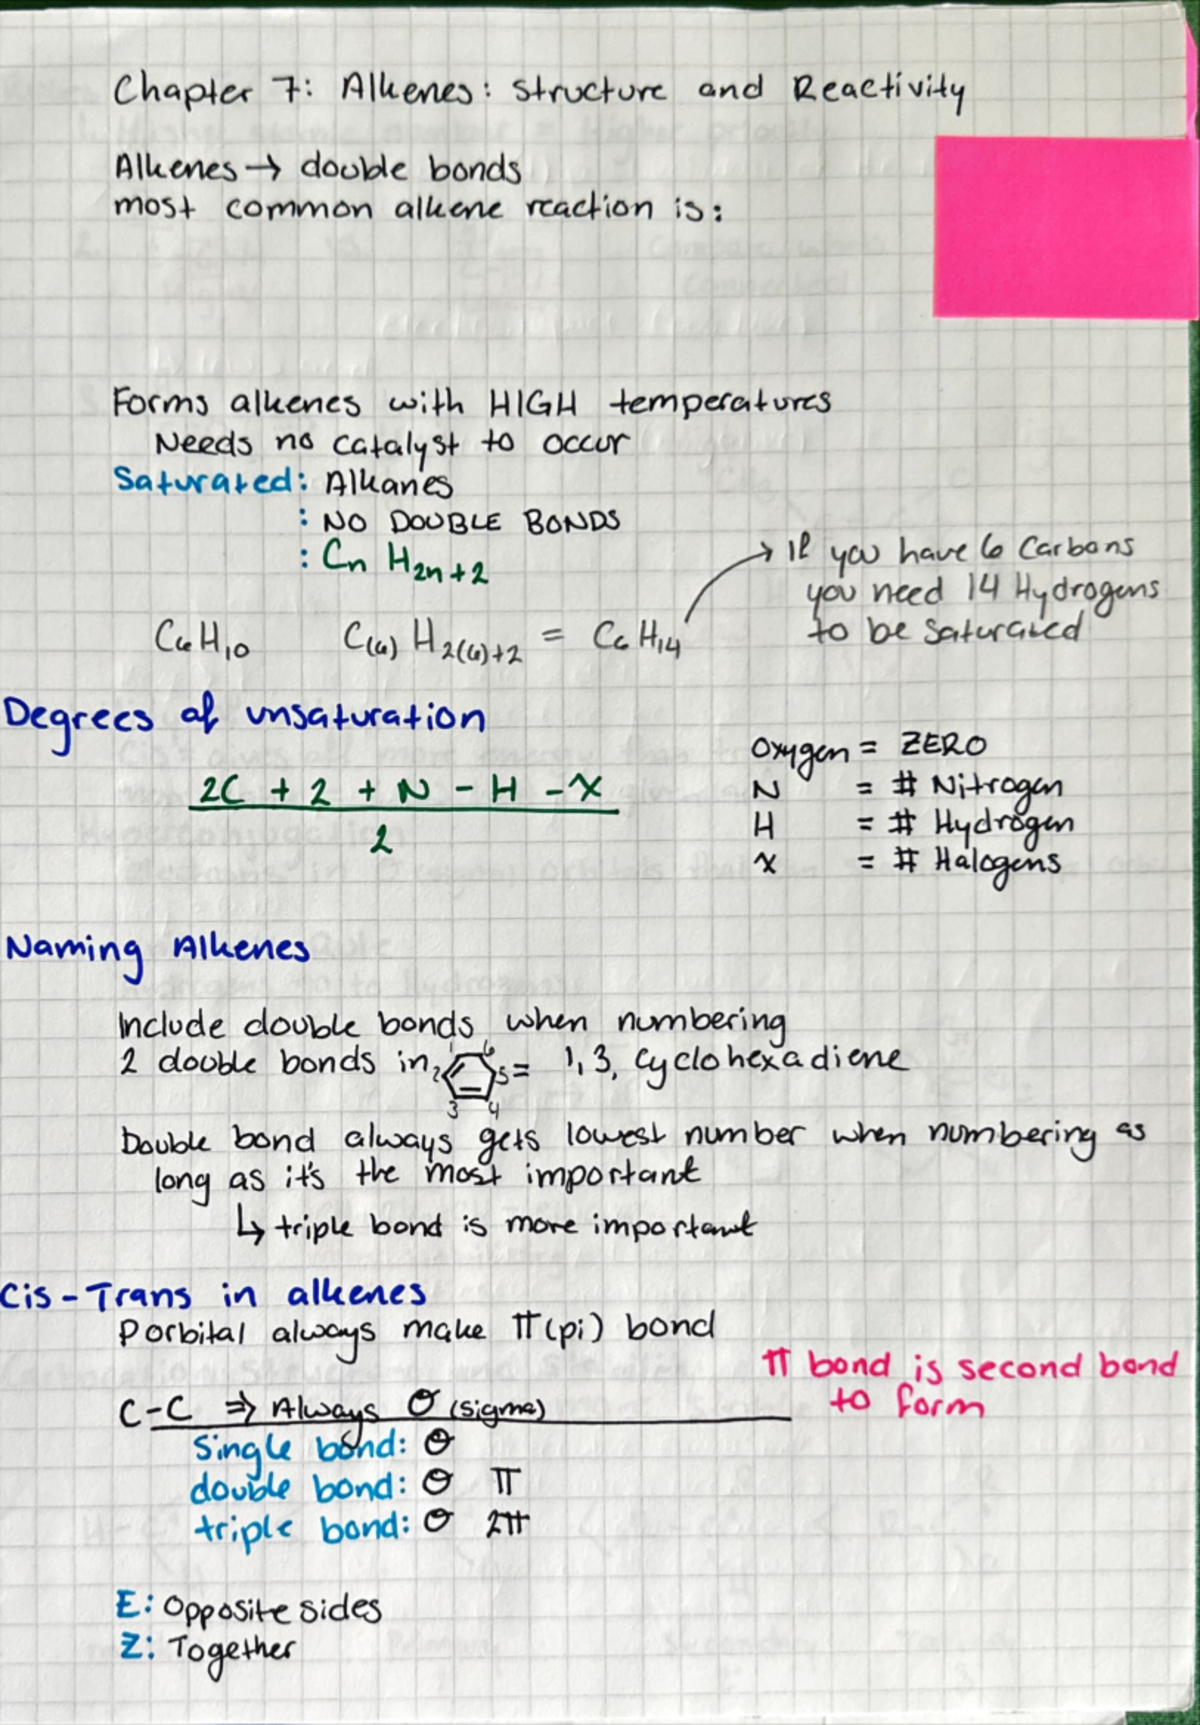 Chapter 7: Alkenes: Structure and Reactivity
Alkenes → double bonds
most common alkene reaction is:
Forms alkenes with HIGH temperatures
Needs no catalyst to occur
Saturated: Alkanes
: NO DOUBLE BONDS
: Cn H2n+2
→ If you have 6 Carbons
you need 14 Hydrogens
to be saturated
C6H10 C(6) H2(6)+2 = C6 H14
Degrees of unsaturation
2C + 2 + N - H - X
2
Oxygen = ZERO
N = # Nitrogen
H = # Hydrogen
X = # Halogens
Naming Alkenes
Include double bonds when numbering
2 double bonds in 1 2 3 4 5 6 = 1,3, cyclohexadiene
Double bond always gets lowest number when numbering as
long as it's the most important
↳ triple bond is more important
Cis-Trans in alkenes
P orbital always make π(pi) bond
π bond is second bond
to form
C-C ⇒ Always σ (sigma)
Single bond: σ
double bond: σ π
triple bond: σ 2π
E: Opposite sides
Z: Together